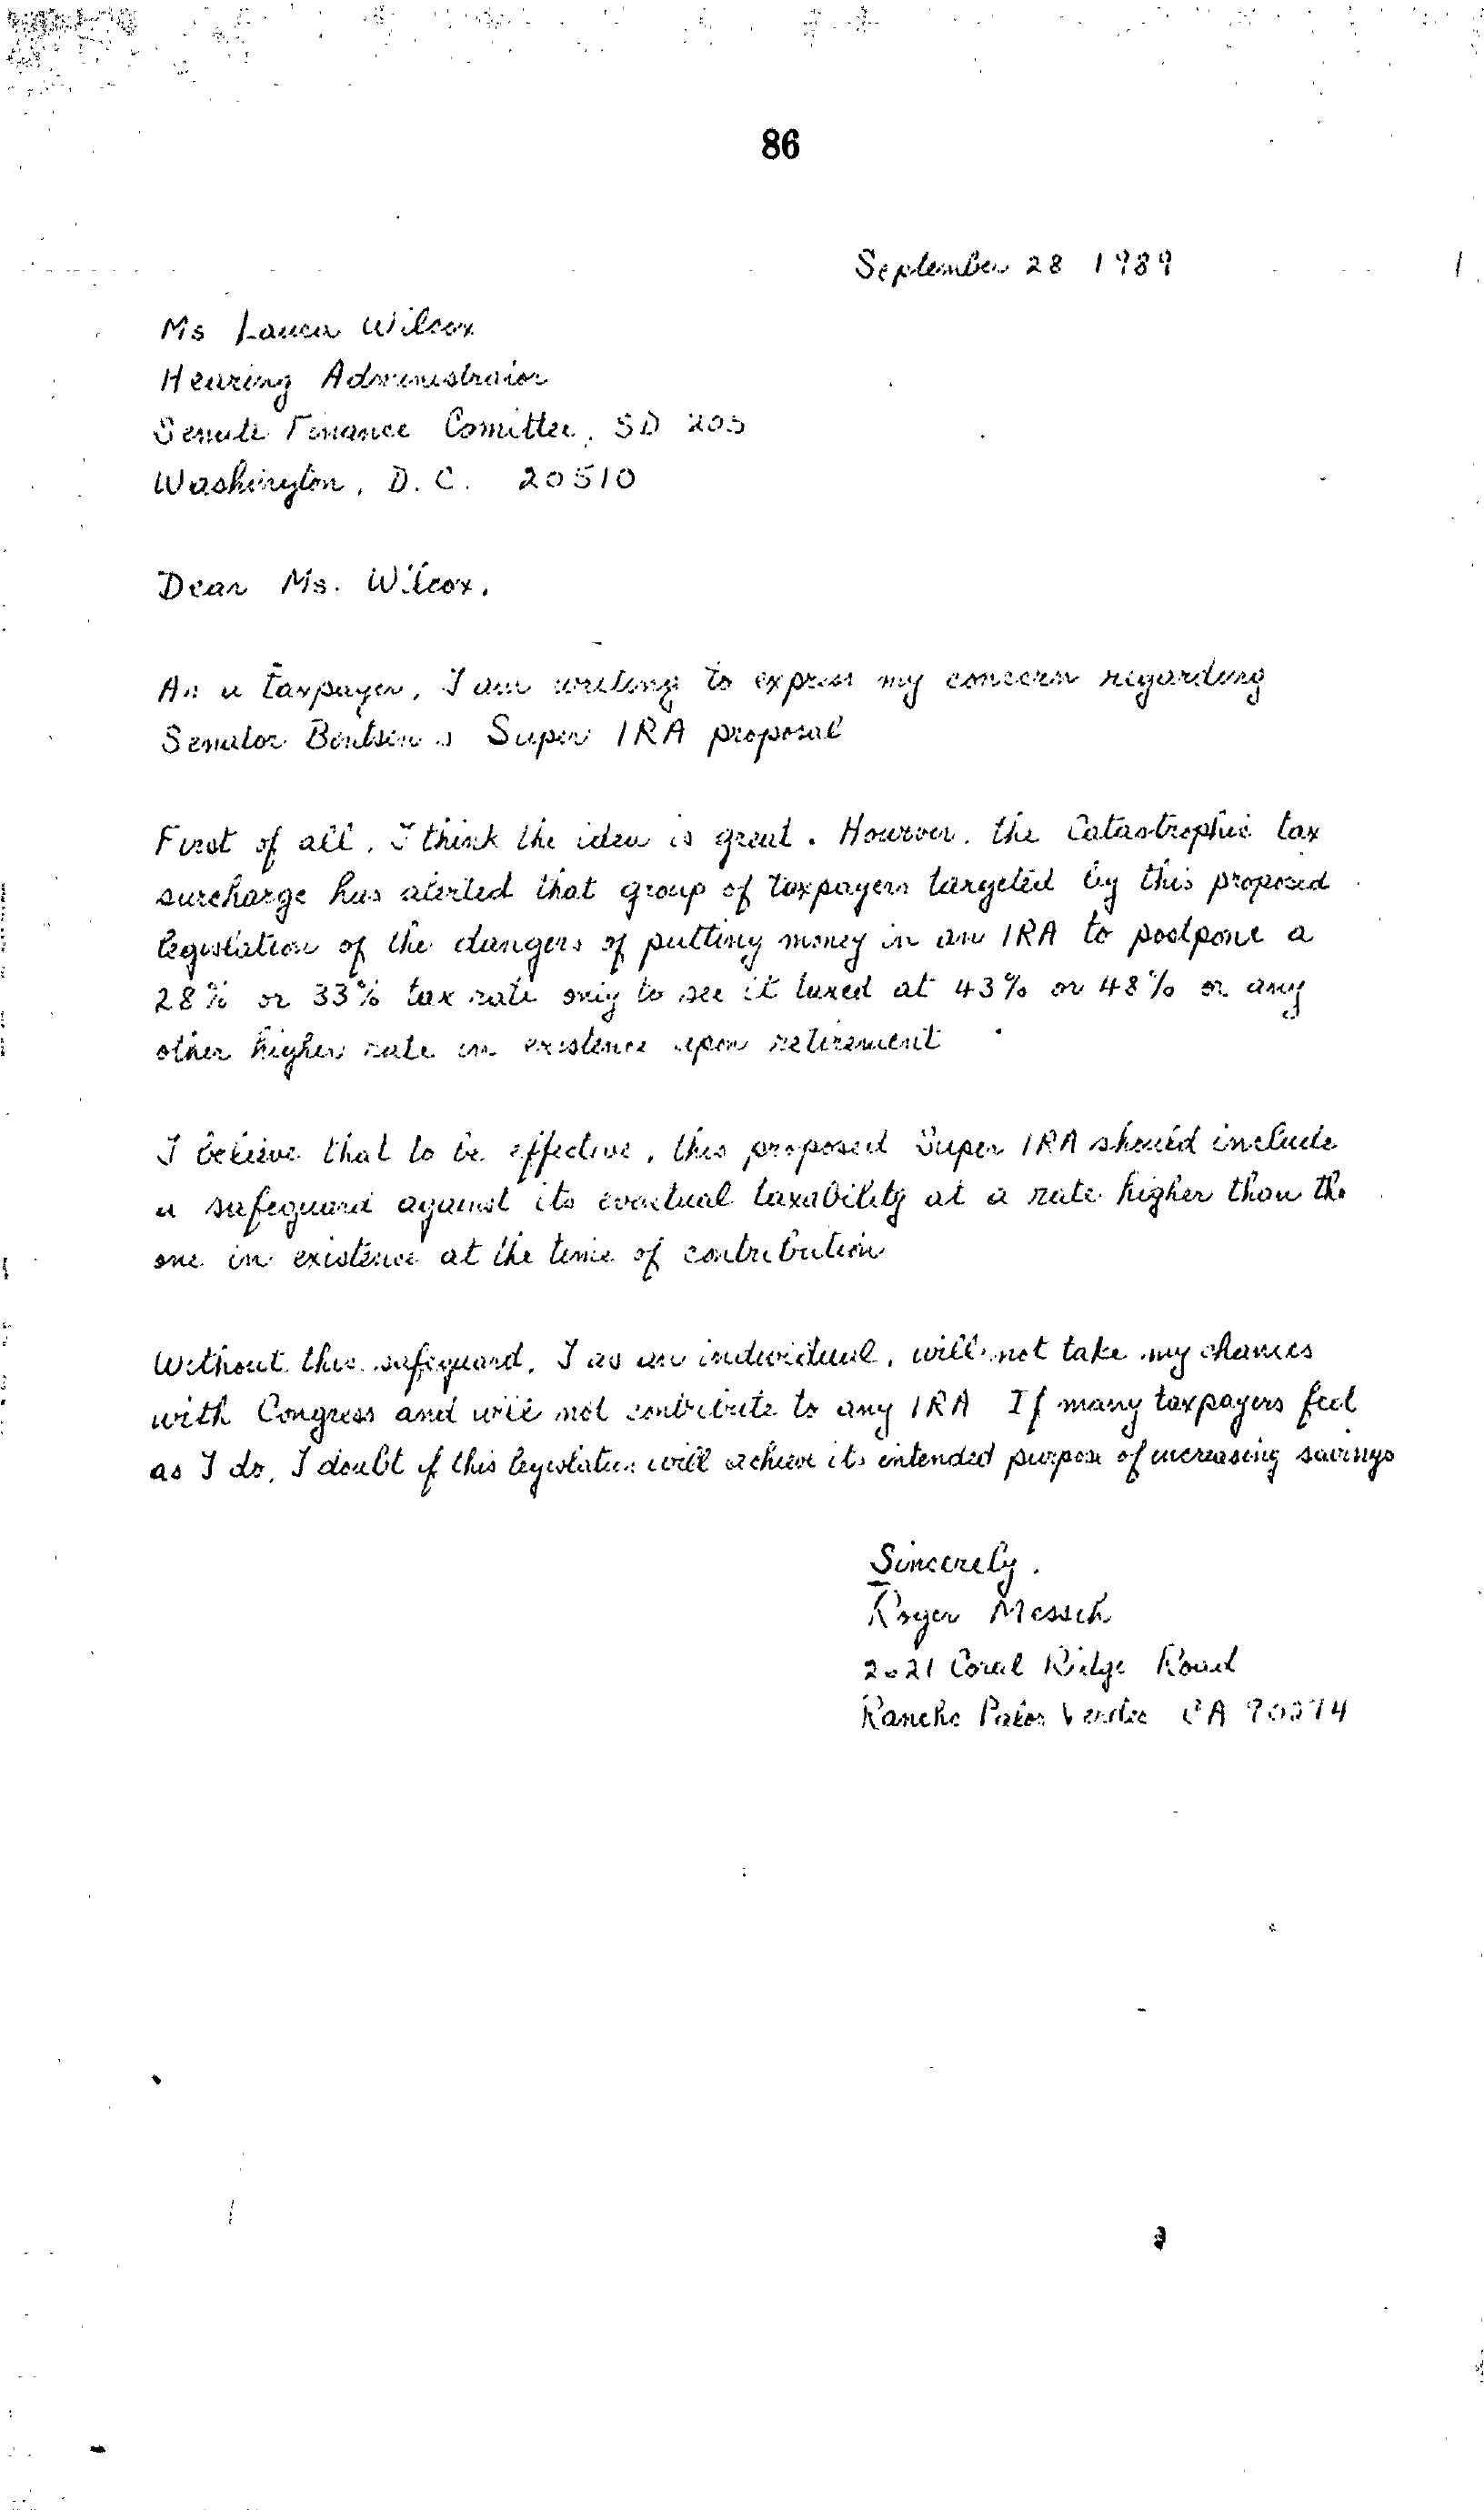 86
September 28 1989
Ms Laura Wilcox
Hearing Administrator
Senate Finance Comittee, SD 205
Washington, D.C. 20510
Dear Ms. Wilcox,
As a taxpayer, I am writing to express my concern regarding
Senator Bentsen's Super IRA proposal
First of all, I think the idea is great. However, the Catastrophic tax
surcharge has alerted that group of taxpayers targeted by this proposed
legislation of the dangers of putting money in an IRA to postpone a
28% or 33% tax rate only to see it taxed at 43% or 48% or any
other higher rate in existence upon retirement
I believe that to be effective, this proposed Super IRA should include
a safeguard against its eventual taxability at a rate higher than the
one in existence at the time of contribution
Without this safeguard, I as an individual, will not take my chances
with Congress and will not contribute to any IRA If many taxpayers feel
as I do, I doubt if this legislation will achieve its intended purpose of increasing savings
Sincerely,
Roger Messeh
2021 Coral Ridge Road
Rancho Palos Verdes CA 90274